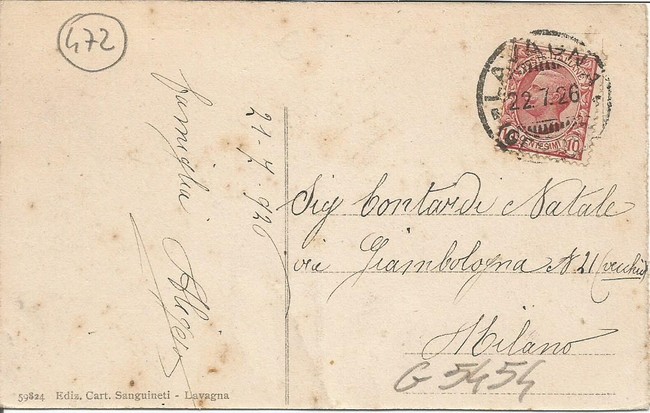 472
famiglia
21-7-926
LAVAGNA
22.7.26
CENTESIMI 10
Sig Contardi Natale
via Giambologna N. 21 (vecchio)
Milano
G 5454
59824 Ediz. Cart. Sanguineti - Lavagna